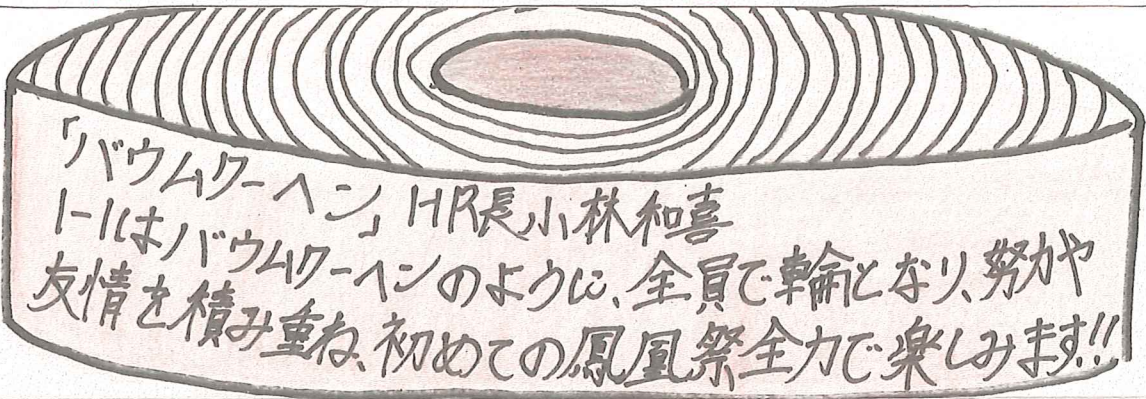 「バウムクーヘン」HR長小林和喜
1-11はバウムクーヘンのように、全員で輪となり、努力や
友情を積み重ね、初めての鳳凰祭全力で楽しみます!!